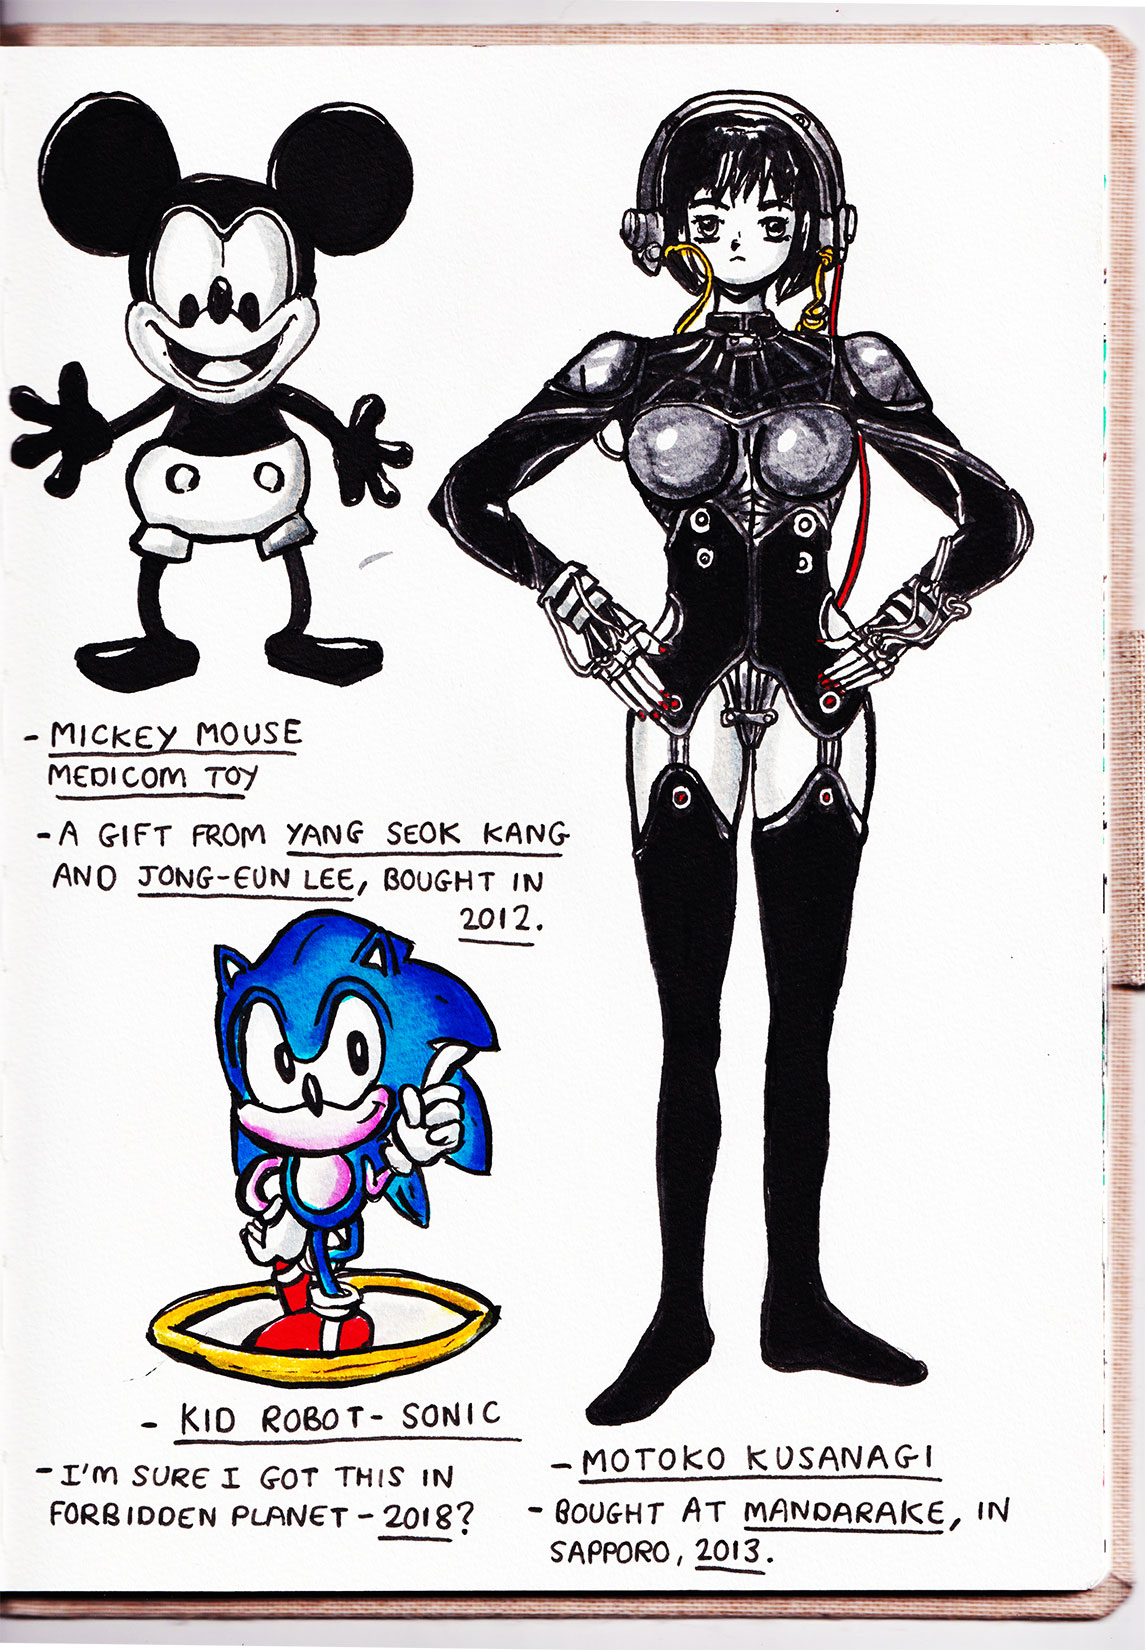 - MICKEY MOUSE
MEDICOM TOY
- A GIFT FROM YANG SEOK KANG
AND JONG-EUN LEE, BOUGHT IN
2012.
- KID ROBOT - SONIC
- I'M SURE I GOT THIS IN
FORBIDDEN PLANET - 2018?
- MOTOKO KUSANAGI
- BOUGHT AT MANDARAKE, IN
SAPPORO, 2013.